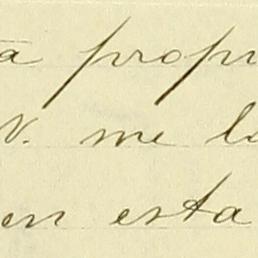 a propi
V. me lo
en esta